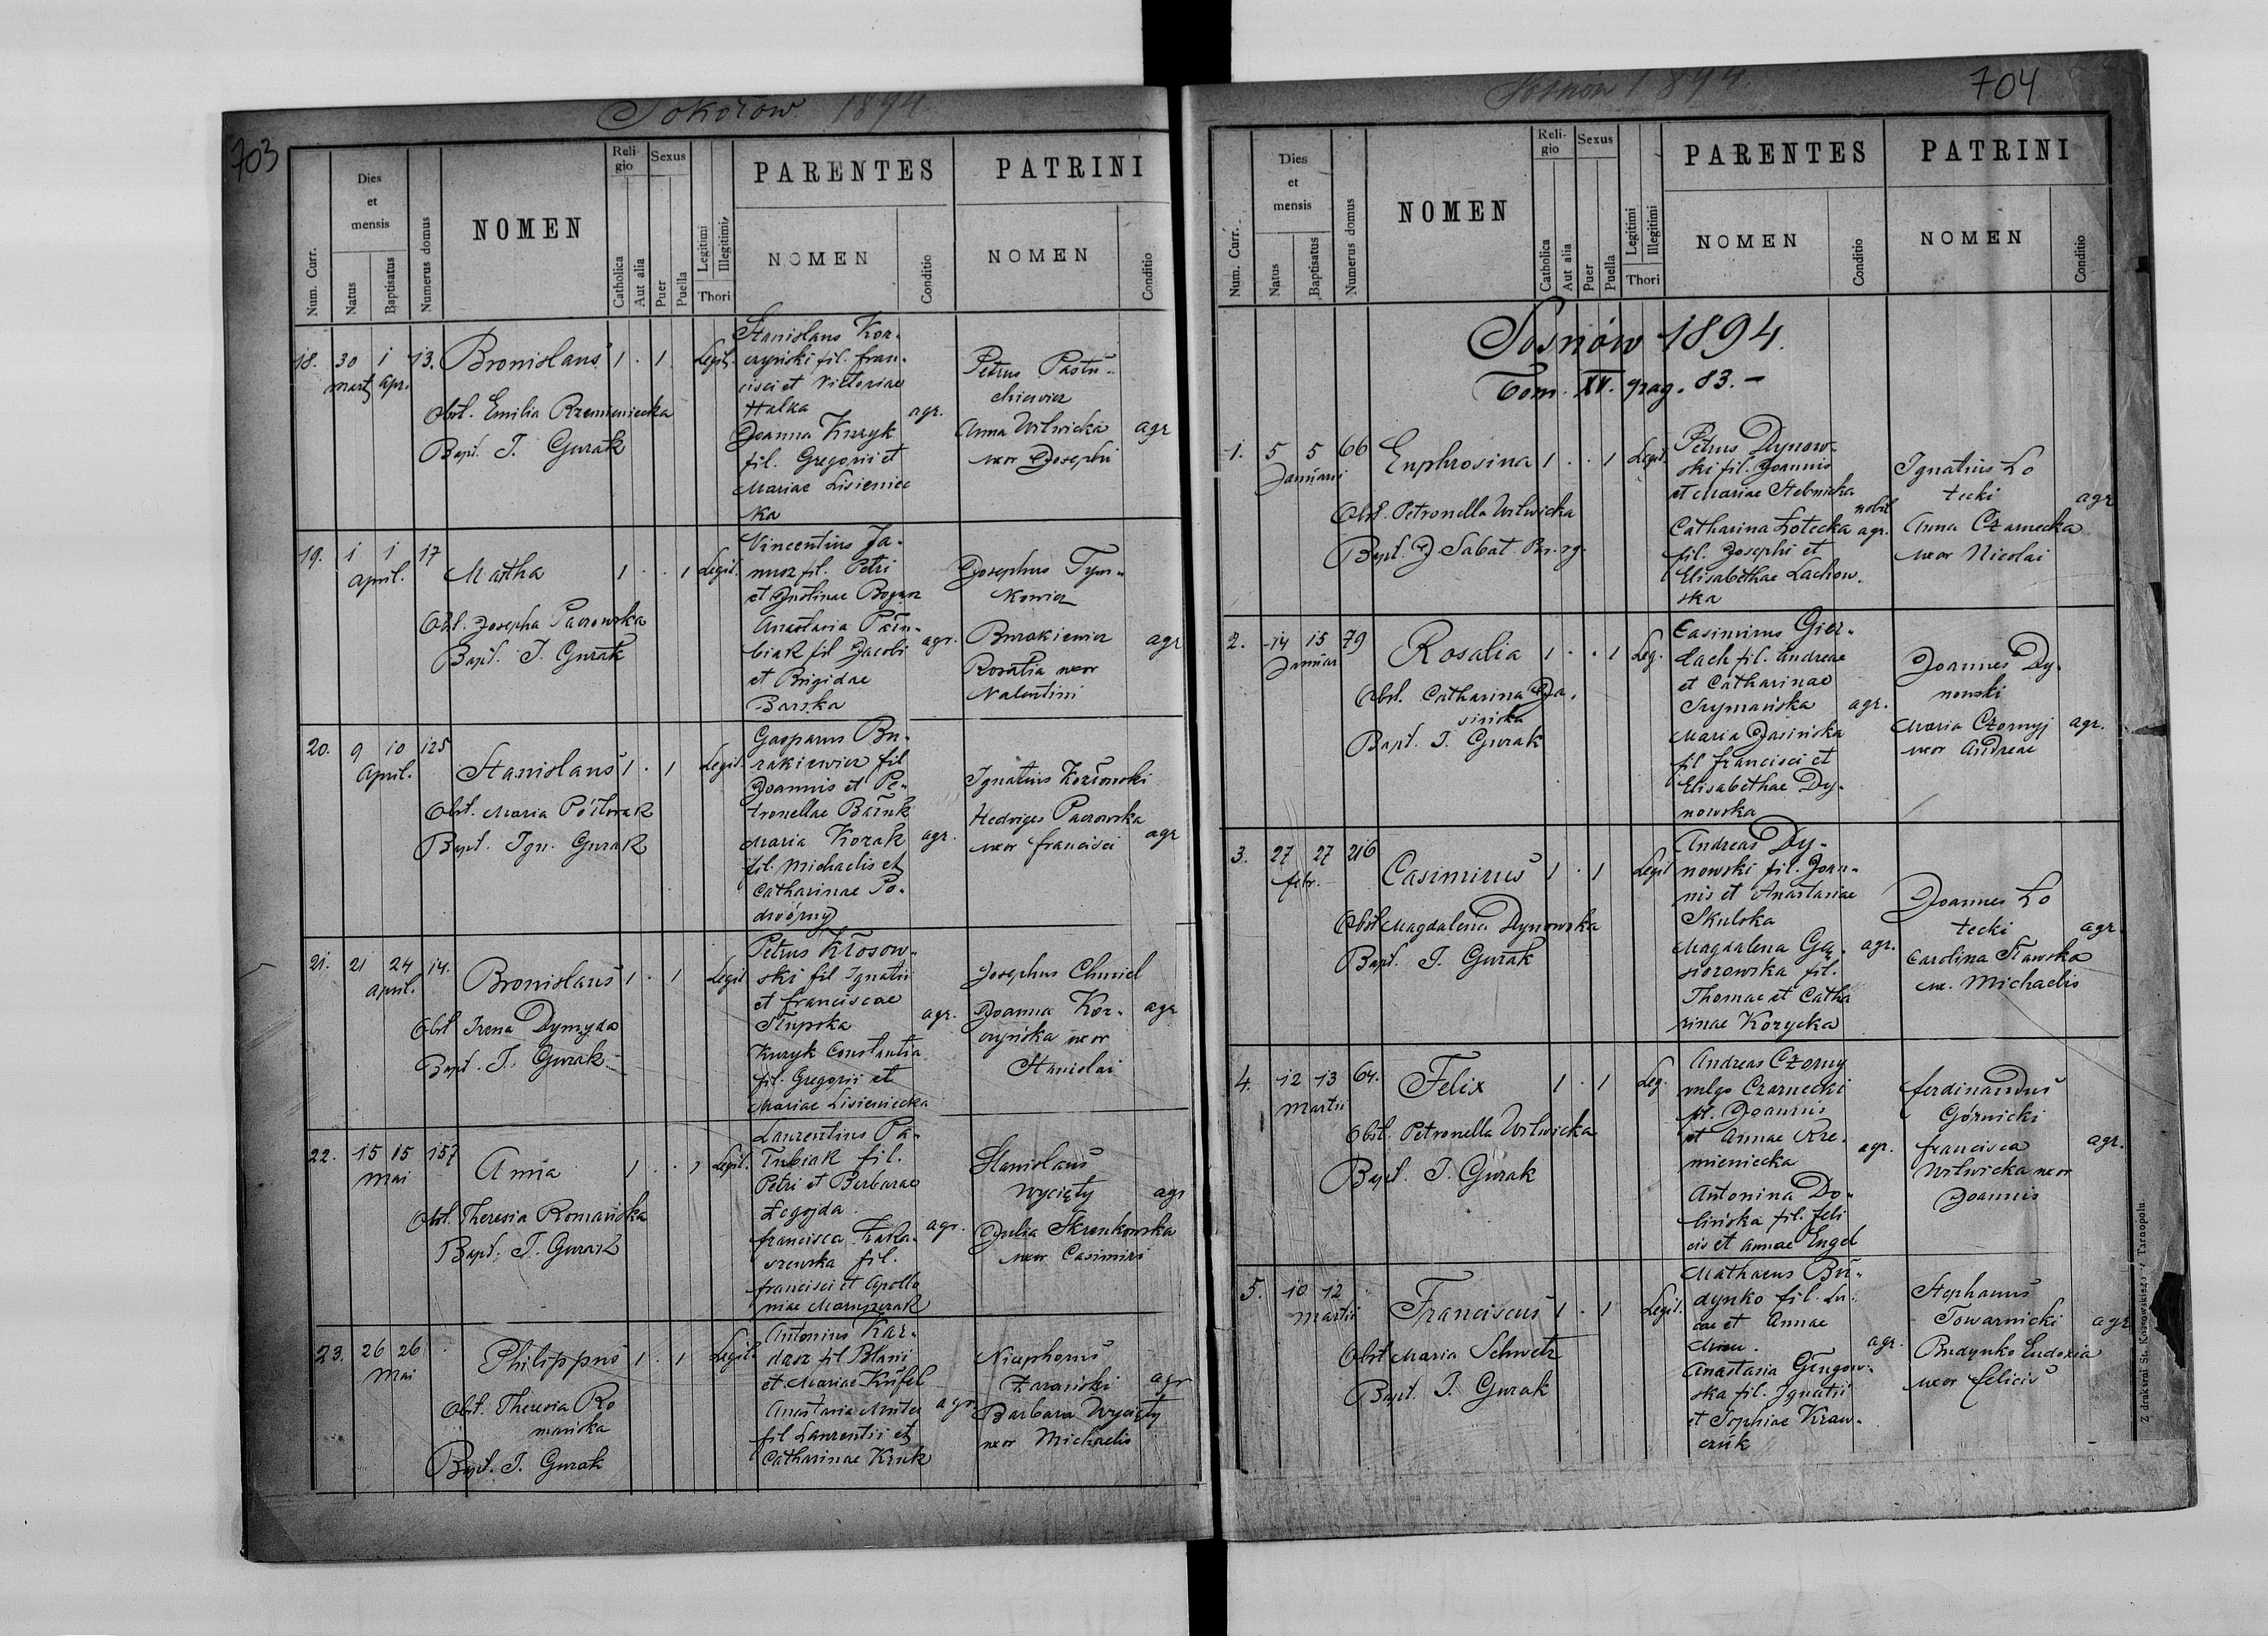 703
Sokołow 1894
Num. Curr.
Dies et mensis
Natus
Baptisatus
Numerus domus
NOMEN
Religio
Catholica
Aut alia
Sexus
Puer
Puella
Legitimi
Illegitimi
Thori
PARENTES
NOMEN
Conditio
PATRINI
NOMEN
Conditio
18. 30 Mart. 1 Apr. 13. Bronislaus 1 . 1 Legit.
Obst. Emilia Rzemieniecka
Bapt. I. Gurak
Stanislaus Kor-
czyński fil. Fran-
cisci et Victoriae
Halka
Joanna Kuryk
fil. Gregorii et
Mariae Lisieniec
ka
agr.
Petrus Pastu-
chiewicz
Anna Witwicka
uxor Josephi
agr
19. 1 1 April. 17 Martha 1 . . 1 Legit.
Obst. Josepha Paczowska
Bapt. I. Gurak
Vincentius Ja-
nusz fil. Petri
et Justinae Bogusz
Anastasia
biak fil Jacobi
et Brigidae
Barska
agr.
Josephus Tym-
kowicz
Burakiewicz
Rosalia uxor
Valentini
agr
20. 9 10 April. 125 Stanislaus 1 . 1 Legit.
Obst. Maria Półtorak
Bapt. Ign. Gurak
Gasparus Bu-
rakiewicz fil
Joannis et Pe-
tronellae Baśnk
Maria Kozak
fil. Michaelis et
Catharinae Po-
dwórny
agr.
Ignatius Kozłowski
Hedviges Paczowska
uxor Francisci
agr
21. 21 24 April. 14. Bronislaus 1 . 1 Legit
Obst Irena Dymyda
Bapt. I. Gurak
Petrus Kłosow-
ski fil Ignatii
et Franciscae
Słupska
Kuryk Constantia
fil. Gregorii et
Mariae Lisieniecka
agr.
Josephus Chmiel
Joanna Kor-
czyńska uxor
Stanislai
agr
22. 15 15 Mai 157 Anna 1 . . 1 Legit.
Obst. Theresia Romańska
Bapt. I. Gurak
Laurentius Pa-
łubiak fil.
Petri et Barbarae
Łogojda.
Francisca
szewska fil.
Francisci et Apollo
niae Maruszczak
agr.
Stanislaus
Wycięty
Julia Skrenkowska
uxor Casimiri
agr
23. 26 26 Mai Philippus 1 . 1 Legit.
Obst. Theresia Ro
mańska
Bapt. I. Gurak
Antonius Kar-
dasz fil Blasii
et Mariae Kufel
Anastasia
fil Laurentii et
Catharinae Kruk
agr
Nicephorus
Żarański
Barbara Wycięty
uxor Michaelis
agr
Sosnów 1894.
704
Num. Curr.
Dies et mensis
Natus
Baptisatus
Numerus domus
NOMEN
Religio
Catholica
Aut alia
Sexus
Puer
Puella
Legitimi
Illegitimi
Thori
PARENTES
NOMEN
Conditio
PATRINI
NOMEN
Conditio
Sosnów 1894.
Tom. XV. pag. 83.-
1. 5 5 Januarii 66 Euphrosina 1 . . 1 Legit.
Obst. Petronella Witwicka
Bapt. J Sabat.
Petrus Dynow-
ski fil. Joannis
et Mariae Stebnicka
Catharina Łotecka
fil. Josephi et
Elisabethae Lachow-
ska
nobil
agr.
Ignatius Lo
tecki
Anna Czarnecka
uxor Nicolai
agr
2. 14 15 Januar 79 Rosalia 1 . . 1 Leg.
Obst. Catharina Ja-
sińska
Bapt. I. Gurak
Casimirus Gier-
lach fil. Andreae
et Catharinae
Szymańska
Maria Jasińska
fil Francisci et
Elisabethae Dy-
nowska
agr.
Joannes Dy-
nowski
Maria Czornyj
uxor Andreae
agr.
3. 27 27 febr. 216 Casimirus 1 . 1 Legit
Obst Magdalena Dynowska
Bapt. I. Gurak
Andreas Dy-
nowski fil. Joan-
nis et Anastasiae
Skulska
Magdalena Gą-
siorowska fil.
Thomae et Catha
rinae Kozycka
agr.
Joannes Lo
tecki
Carolina Stawska
ux. Michaelis
agr
4. 12 13 Martii 64. Felix 1 . 1 Leg.
Obst. Petronella Witwicka
Bapt. I. Gurak
Andreas Czorny
vulgo Czarnecki
fil. Joannis
et Annae Krze-
mieniecka
Antonina Do-
lińska fil. Feli
cis et Annae Engel
agr.
Ferdinandus
Górnicki
Francisca
Witwicka uxor
Joannis
agr.
5. 10 12 Martii Franciscus 1 . 1 Legit.
Obst Maria Schwetz
Bapt. I. Gurak
Mathaeus Bu-
dynko fil. Lu-
cae et Annae
Anastasia
ska fil. Ignatii
et Sophiae Kraw-
czuk
agr.
Stephanus
Towarnicki
Budynko Eudoxia
uxor Felicis
agr
Z drukarni St. Kossowskiego w Tarnopolu.